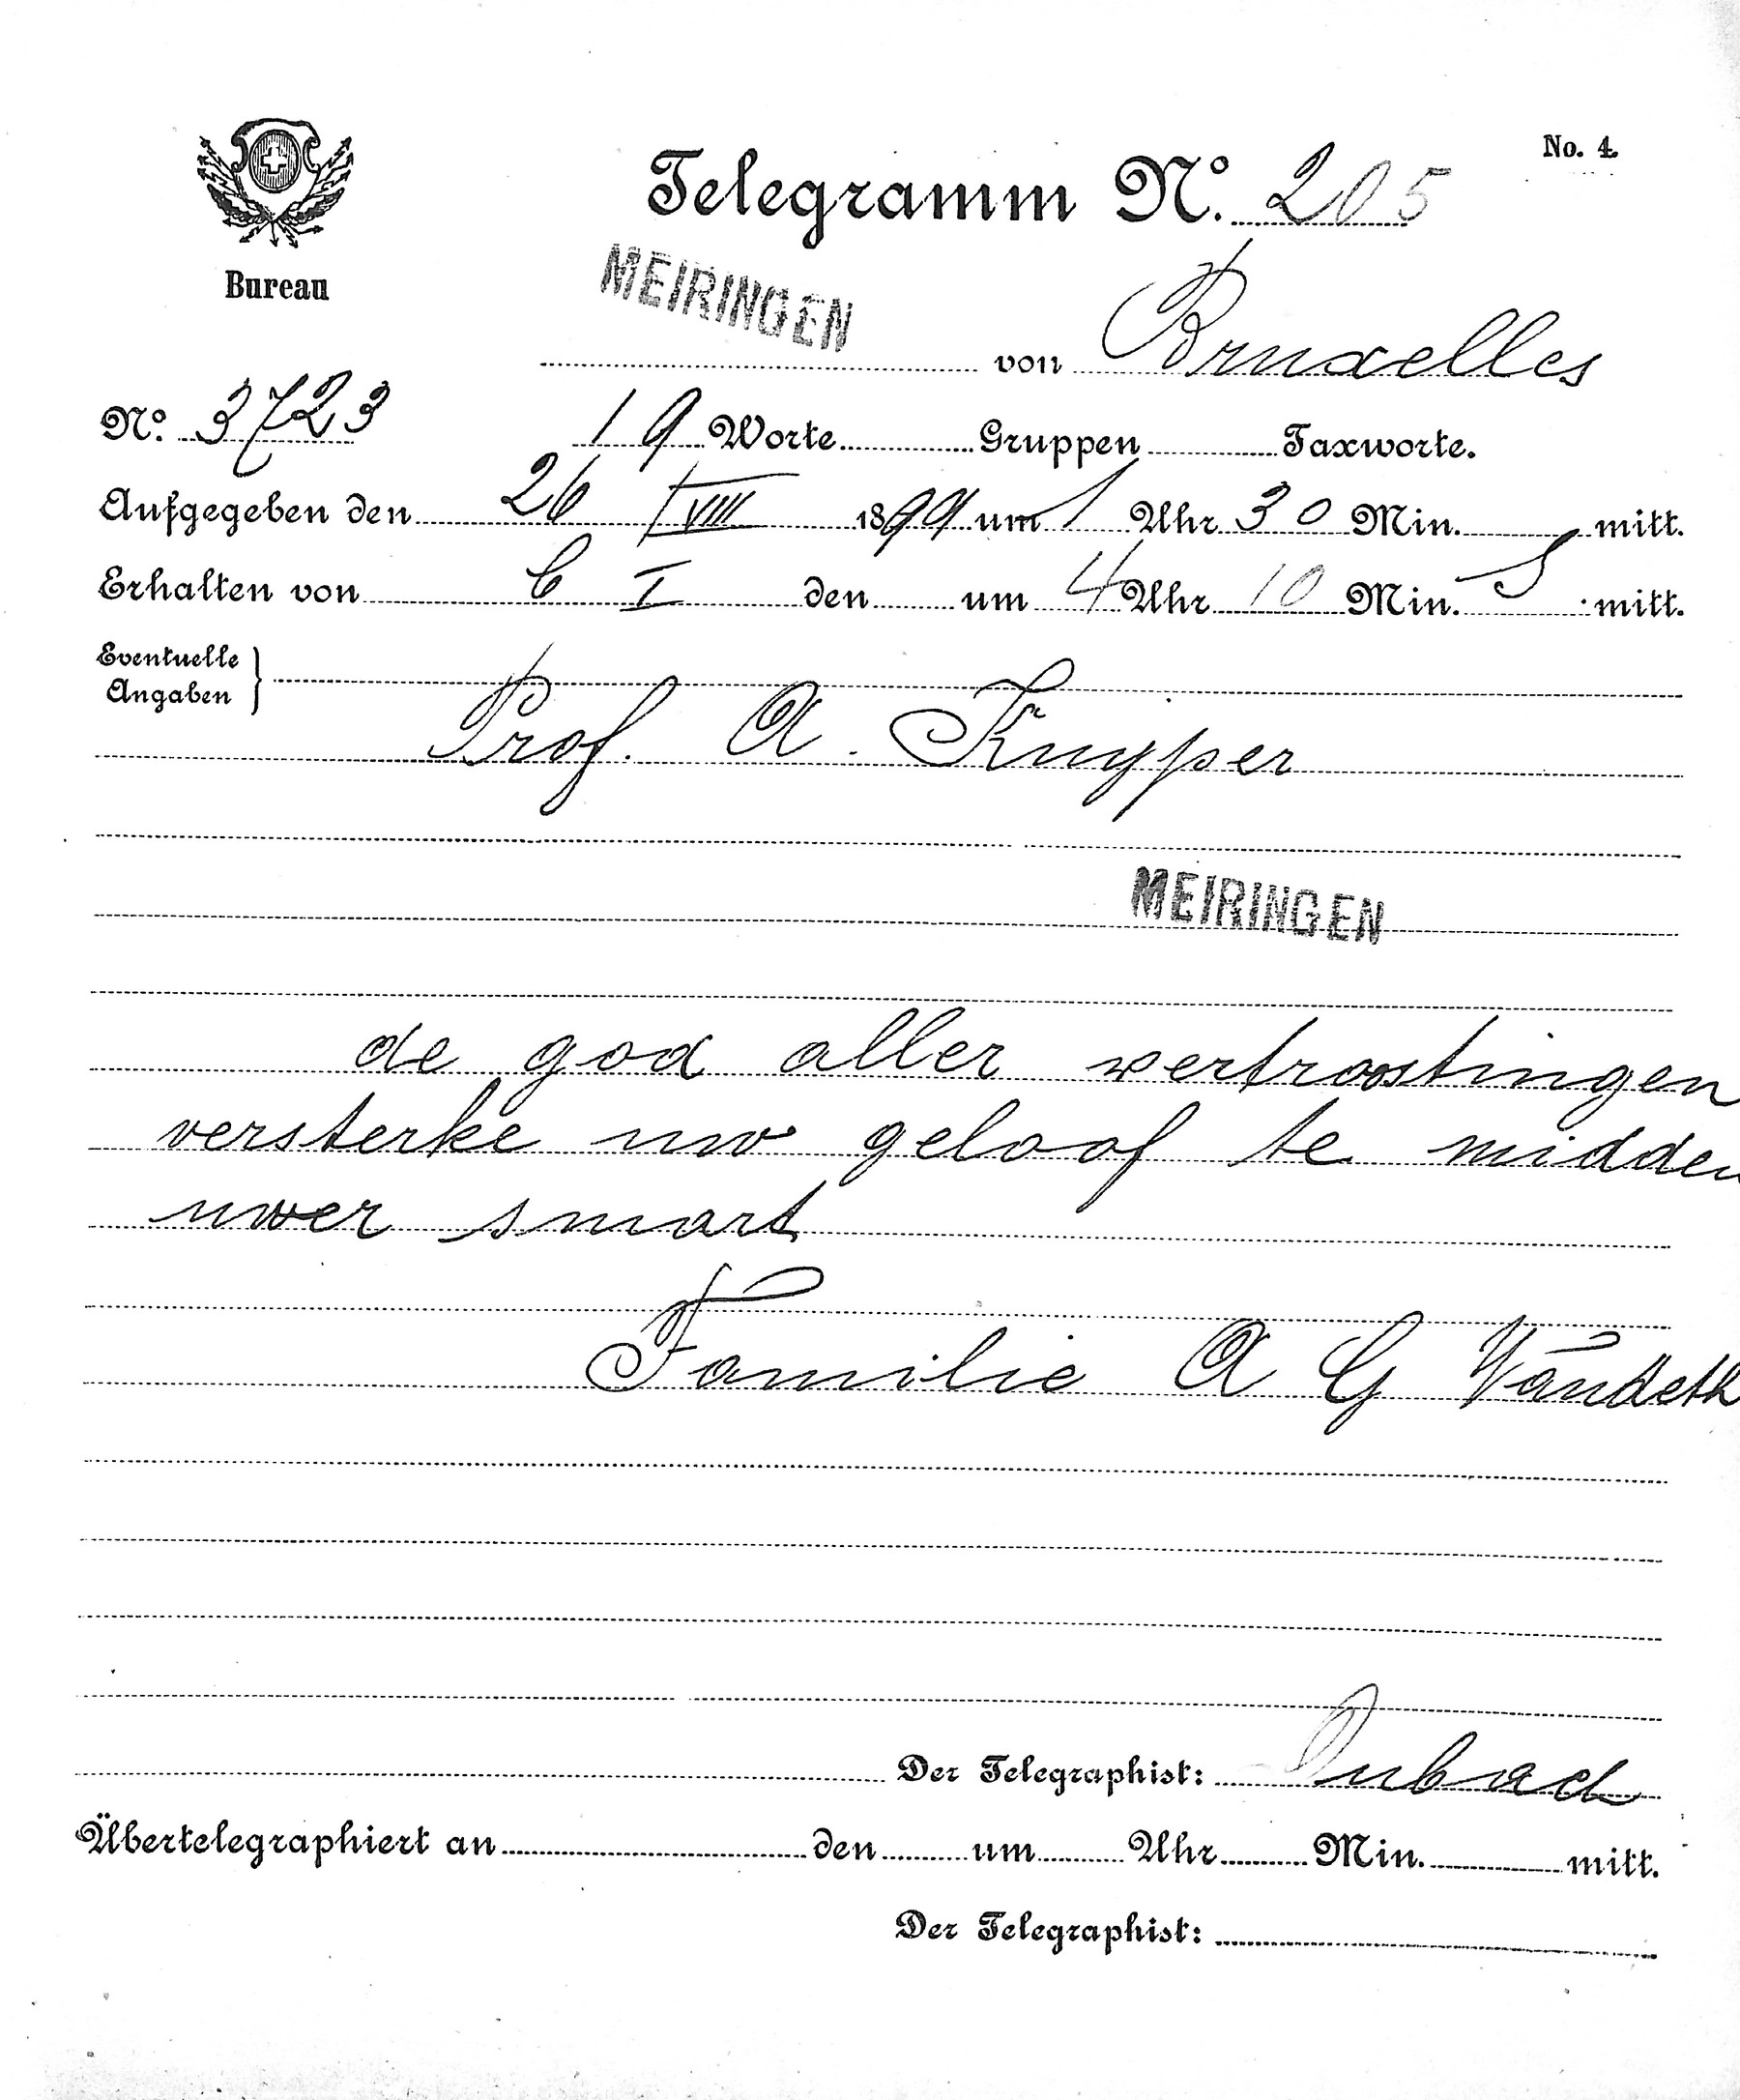 No. 4.
Telegramm No. 205
Bureau
MEIRINGEN
von Bruxelles
No. 3723 19 Worte Gruppen Taxworte.
Aufgegeben den 26 VIII 1899 um 1 Uhr 30 Min. mitt.
Erhalten von den um 4 Uhr 10 Min. S mitt.
Eventuelle
Angaben }
Prof. A. Kuyper
MEIRINGEN
de god aller vertroostingen
versterke uw geloof te midden
uwer smart
Familie A G
Der Telegraphist:
Übertelegraphiert an den um Uhr Min. mitt.
Der Telegraphist: